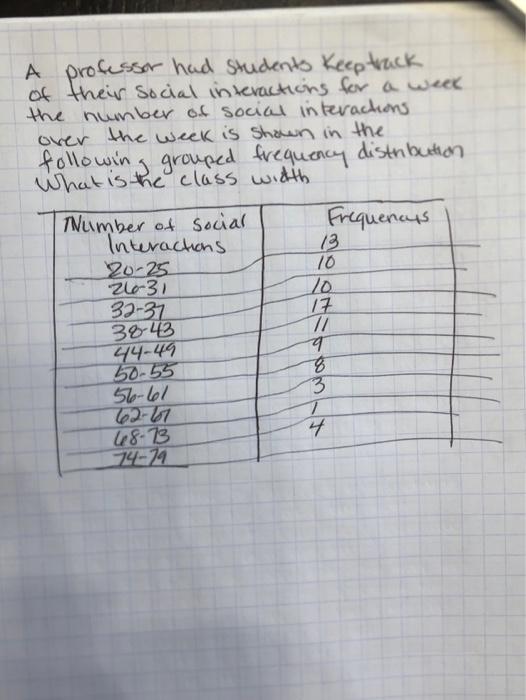 A professor had students Keep track
of their social interactions for a week
the number of social interactions
over the week is shown in the
following grouped frequency distribution
What is the class width
Number of Social Interactions
Frequencys
13
20-25
10
26-31
10
32-37
17
38-43
11
44-49
9
50-55
8
56-61
3
62-67
1
68-73
4
74-79